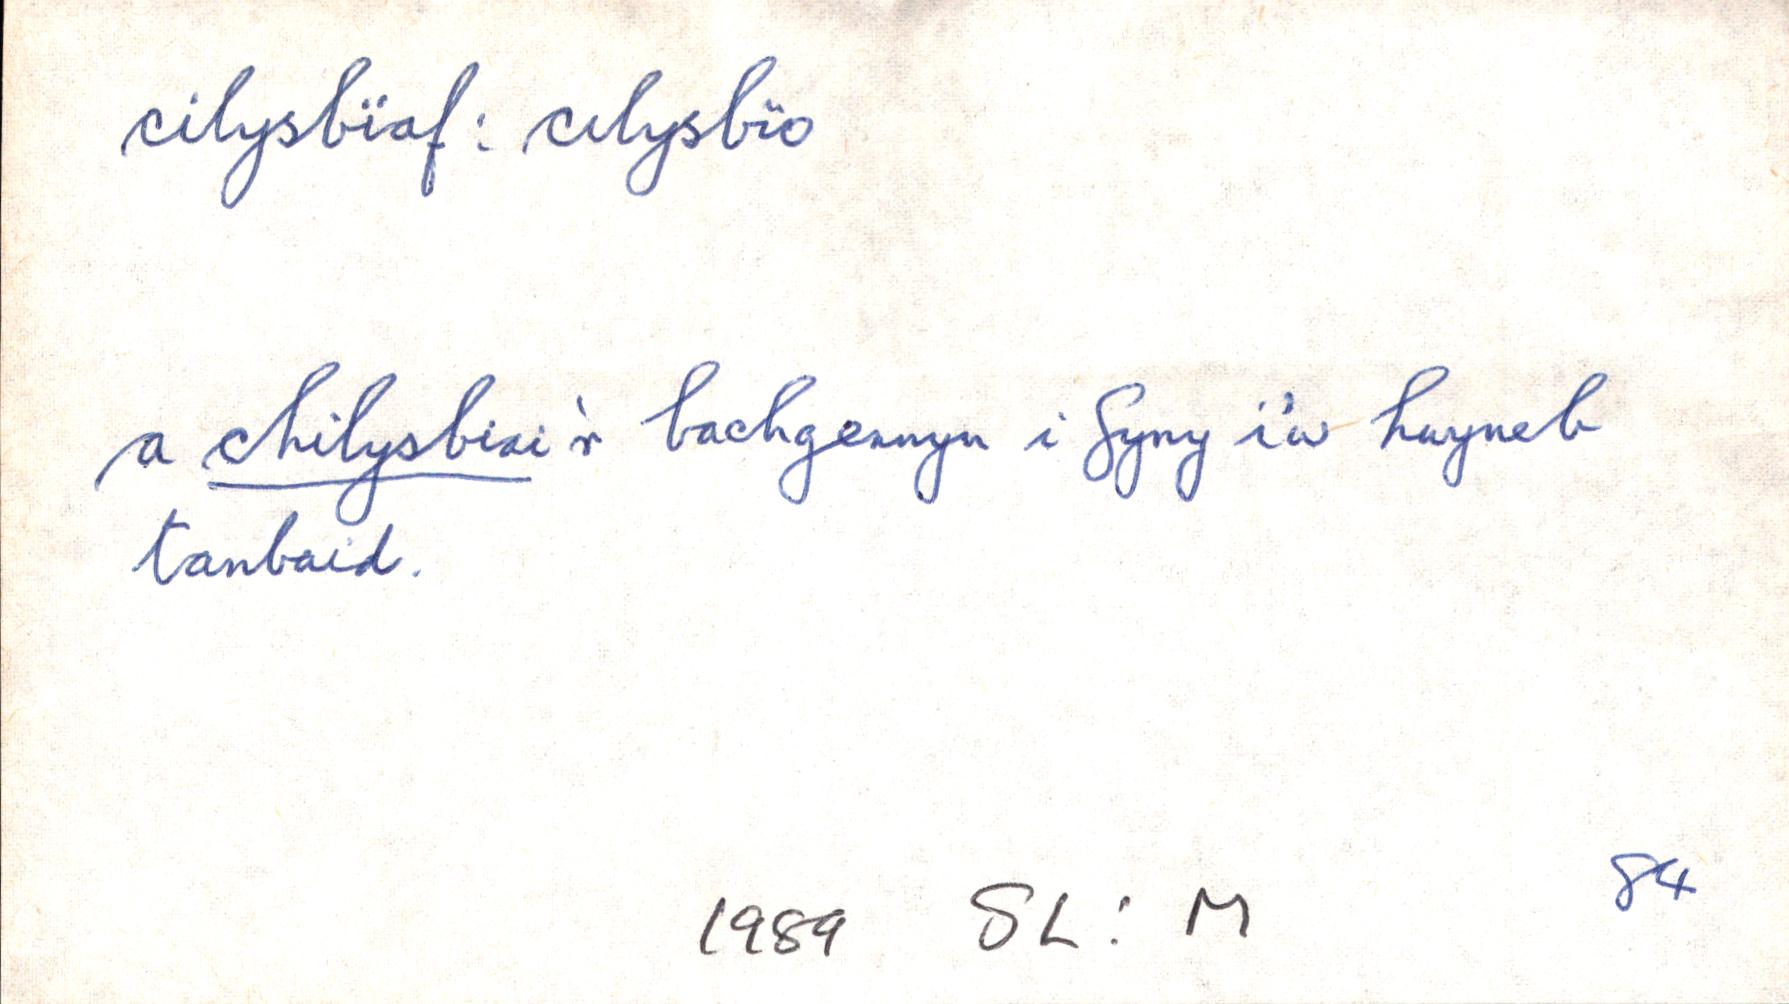 cilysbïaf: cilysbïo
a chilysbiai'r bachgennyn i fyny i'w hwyneb
tanbaid.
84
1989 SL: M